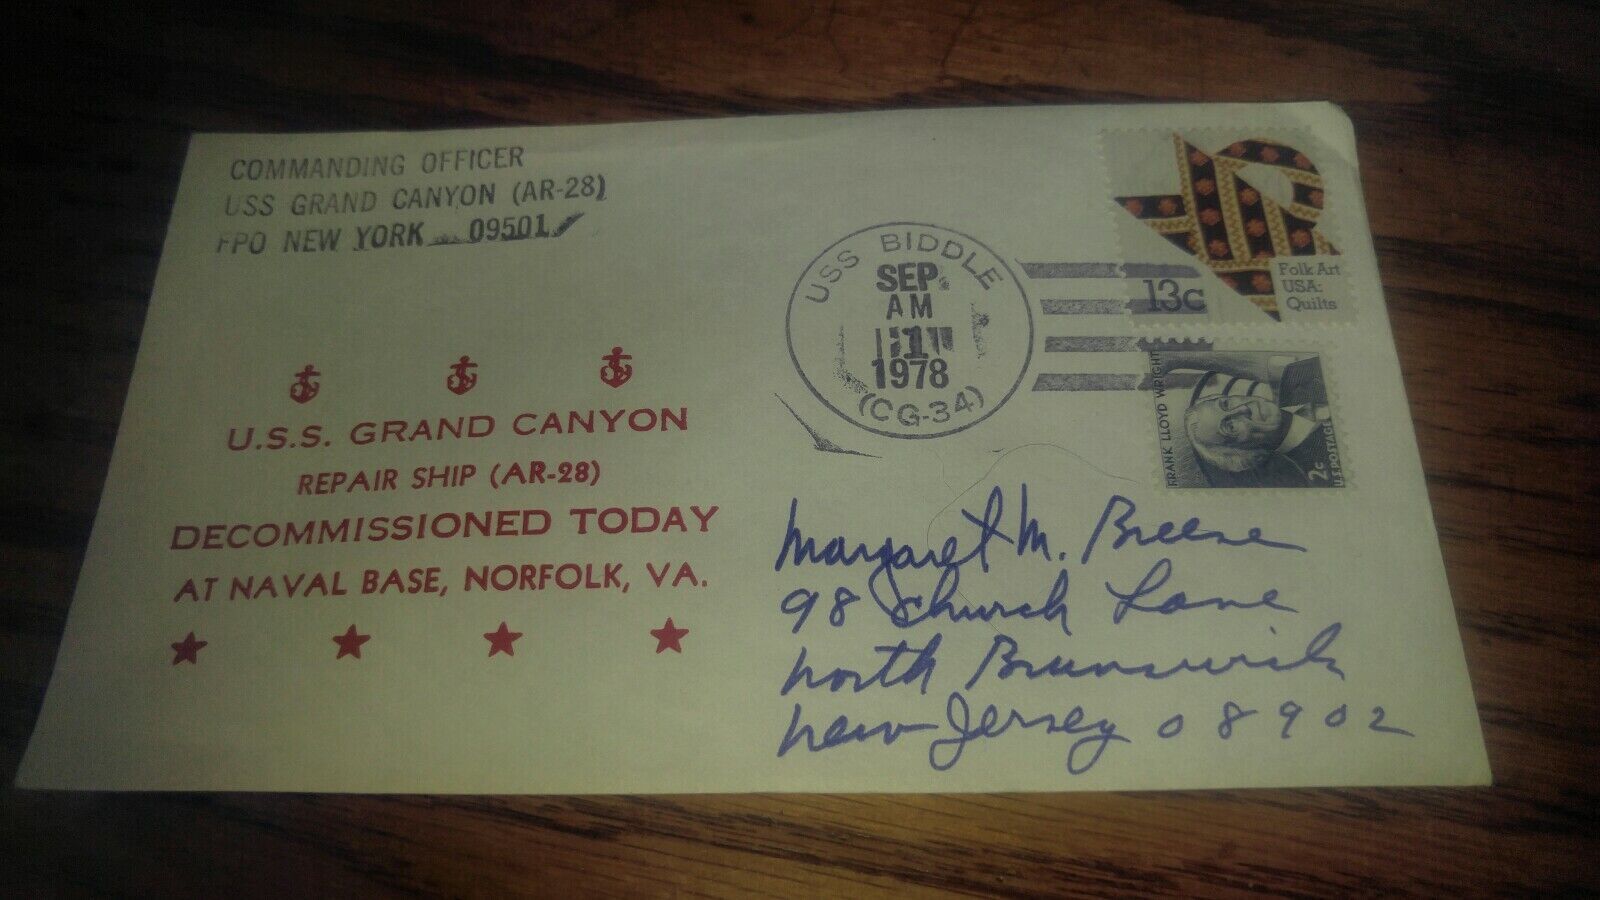 COMMANDING OFFICER
USS GRAND CANYON (AR-28)
FPO NEW YORK 09501
USS BIDDLE
SEP
AM
1
1978
(CG-34)
13c
Folk Art
USA:
Quilts
FRANK LLOYD WRIGHT
2c
U.S. POSTAGE
U.S.S. GRAND CANYON
REPAIR SHIP (AR-28)
DECOMMISSIONED TODAY
AT NAVAL BASE, NORFOLK, VA.
Margaret M. Breese
98 Church Lane
North Brunswick
New Jersey 08902